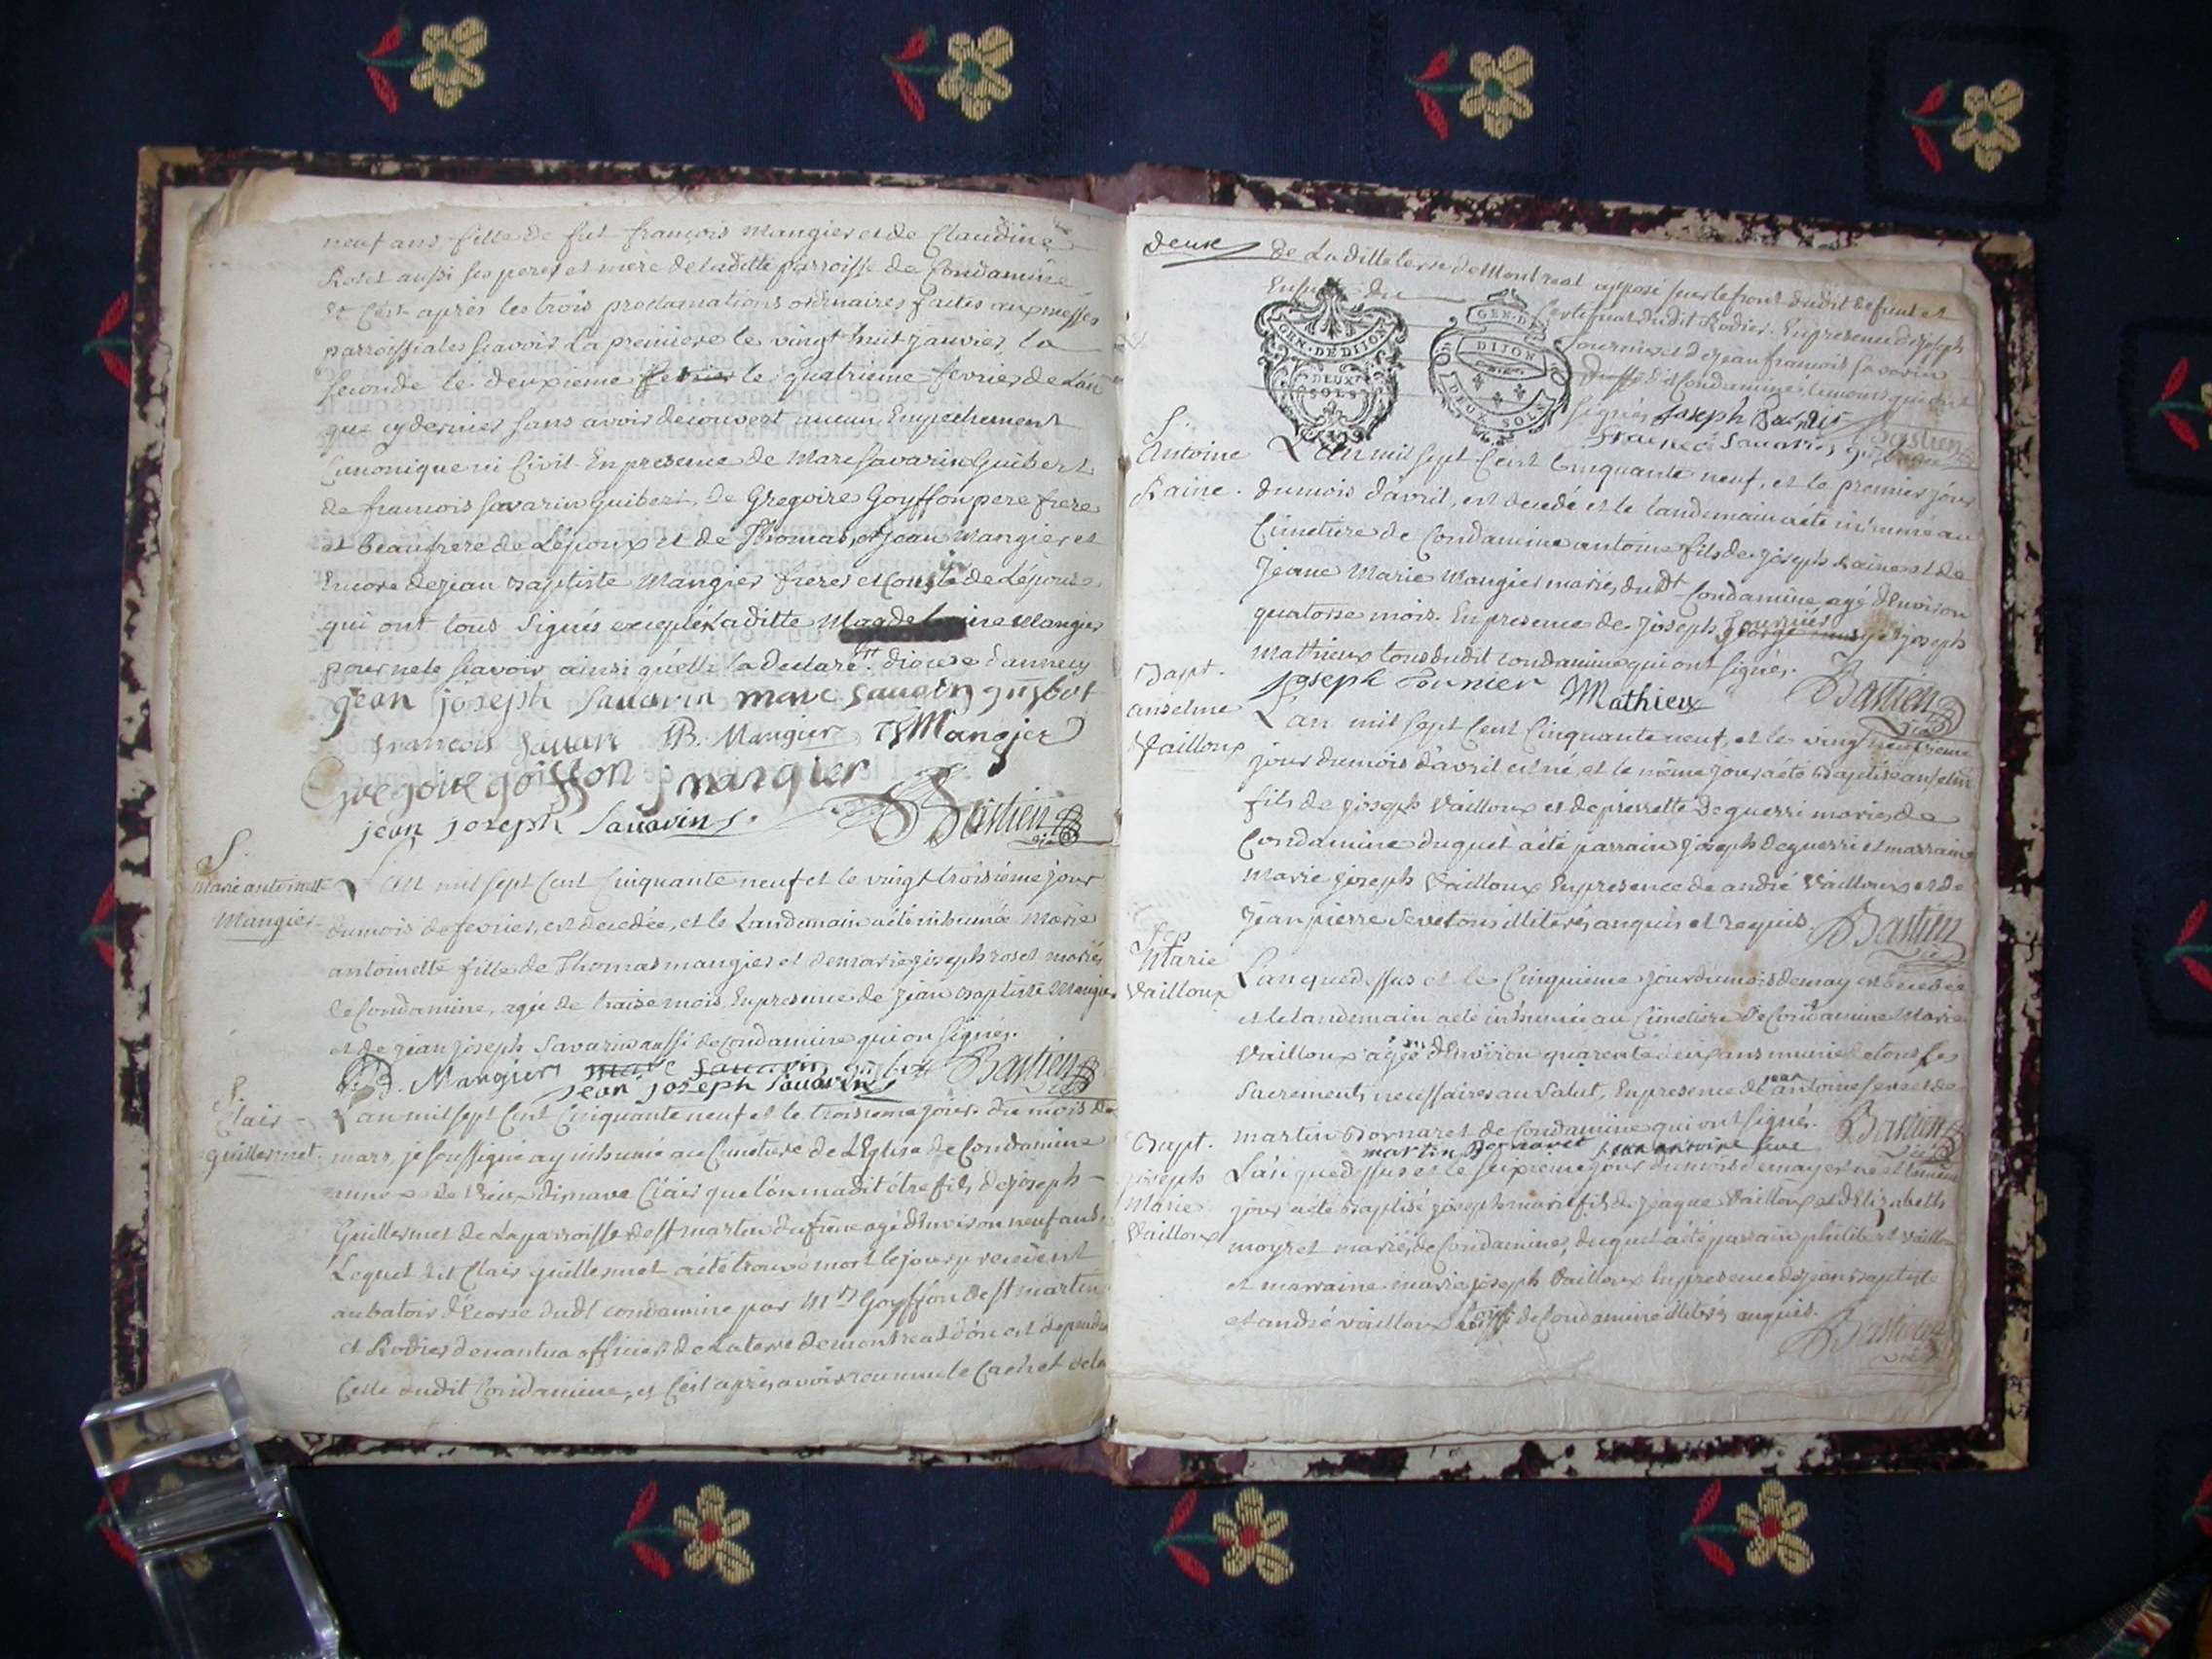 neuf ans fille de fut françois Mangier et de Claudine
Roset aussi ses peres et mère de laditte parroisse de Condamine
et c'est après les trois proclamations ordinaires faites aux messes
parroissiales sçavoir la premiere le vingt huit janvier, la
seconde le deuxieme fevrier le quatrieme fevrier de l'an
que cy dernier sans avoir decouvert aucun Empechement
Canonique ni Civil. En presence de Marc Savarin Guibert
de francois Savarin Guibert, de Gregoire Goyffon pere frere
et beaufrere de Lépoux et de Thomas, et Jean Mangier et
Encore de jean Baptiste Mangier freres et Cousin de Lépouse
qui ont tous signés excepté Laditte Magdeleine Mangier
pour ne le sçavoir ainsi qu'elle la declaré diocese d'annecy
jean joseph Sauarin marc sauarin guibert
francois sauari JB. Mangier T Mangier
Gregoire goiffon j mangier
jean joseph Sauarin Bastien
S.
Marie antoinette
Mangier
L'an mil sept Cent Cinquante neuf et le vingt troisième jour
du mois de fevrier, est decedée, et le Landemain a été inhumée Marie
antoinette fille de Thomas mangier et de marie joseph roset mariés
de Condamine, agée de traise mois. En presence de jean Baptiste Mangier
et de jean joseph Savarin aussi de Condamine qui on signés.
J.B. Mangier marc sauarin guibert Bastien
jean joseph Sauarin
S.
Clair
guillermet
L'an mil sept Cent Cinquante neuf et le troisieme jour du mois de
mars, je soussigné ay inhumé au Cimetiere de L'Eglise de Condamine
annexe de Vieux dimave Clair que l'on m'a dit être fils de joseph
Guillermet de La parroisse de st martin du frene agé d'Environ neuf ans,
Lequel dit Clair guillermet a été trouvé mort le jour precedent
au batoir d'Ecorse dudt condamine par Mrs Goyffon de st martin
et Rodier de nantua officiers de La terre de montreal d'ou est dependante
Celle dudit Condamine, et C'est après avoir reconnu le Cachet de la
deux
de La ditte terre de Montreal apposé sur le front dudit defunt et
Ensuite du
certificat dudit Rodier. En presence de joseph
fournier et de jean francois savarin
de Condamine temoins qui ont
signés Joseph
francois Sauarin guibert Bastien
GEN. DE DIJON
DEUX
SOLS
GEN. DE
DIJON
DEUX SOLS
S.
Antoine
Raine.
L'an mil sept Cent Cinquante neuf, et le premier jour
du mois d'avril, est decedé et le landemain a été inhumé au
Cimetiere de Condamine antoine fils de joseph Raine et de
Jeane Marie Mangier mariés dudt Condamine agé d'Environ
quatorse mois. En presence de Joseph fournier et joseph
Mathieux tous dudit condamine qui ont signés.
joseph fournier Mathieux Bastien
Bapt.
anselme
Vailloux
L'an mil sept Cent Cinquante neuf, et le vingt neuvieme
jour du mois d'avril est né, et le même jour a été Baptisé anselme
fils de joseph Vailloux et de pierrette Deguerri mariés de
Condamine duquel a été parrain joseph deguerri et marraine
Marie joseph Vailloux En presence de andré Vailloux et de
Jean pierre Seve tous illiterés enquis et requis. Bastien
Sep
Marie
Vailloux
L'an que dessus et le Cinquieme jour du mois de may est decedée
et le landemain a été inhumée au Cimetiere de Condamine Marie
Vailloux agée d'Environ quarente deux ans munie de tous les
Sacrements necessaires au Salut, En presence de jean antoine seve et de
martin Bornaret de Condamine qui ont signés. Bastien
martin Bornaret jean antoine seve
Bapt.
joseph
Marie
Vailloux
L'an que dessus et le septieme jour du mois de may est né et le même
jour a été Baptisé joseph marie fils de jaque Vailloux et d'Elizabeth
moyret mariés de Condamine, duquel a été parrain philibert Vailloux
et marraine marie joseph Vailloux En presence de jean Baptiste
et andré Vailloux de Condamine illiterés enquis.
Bastien